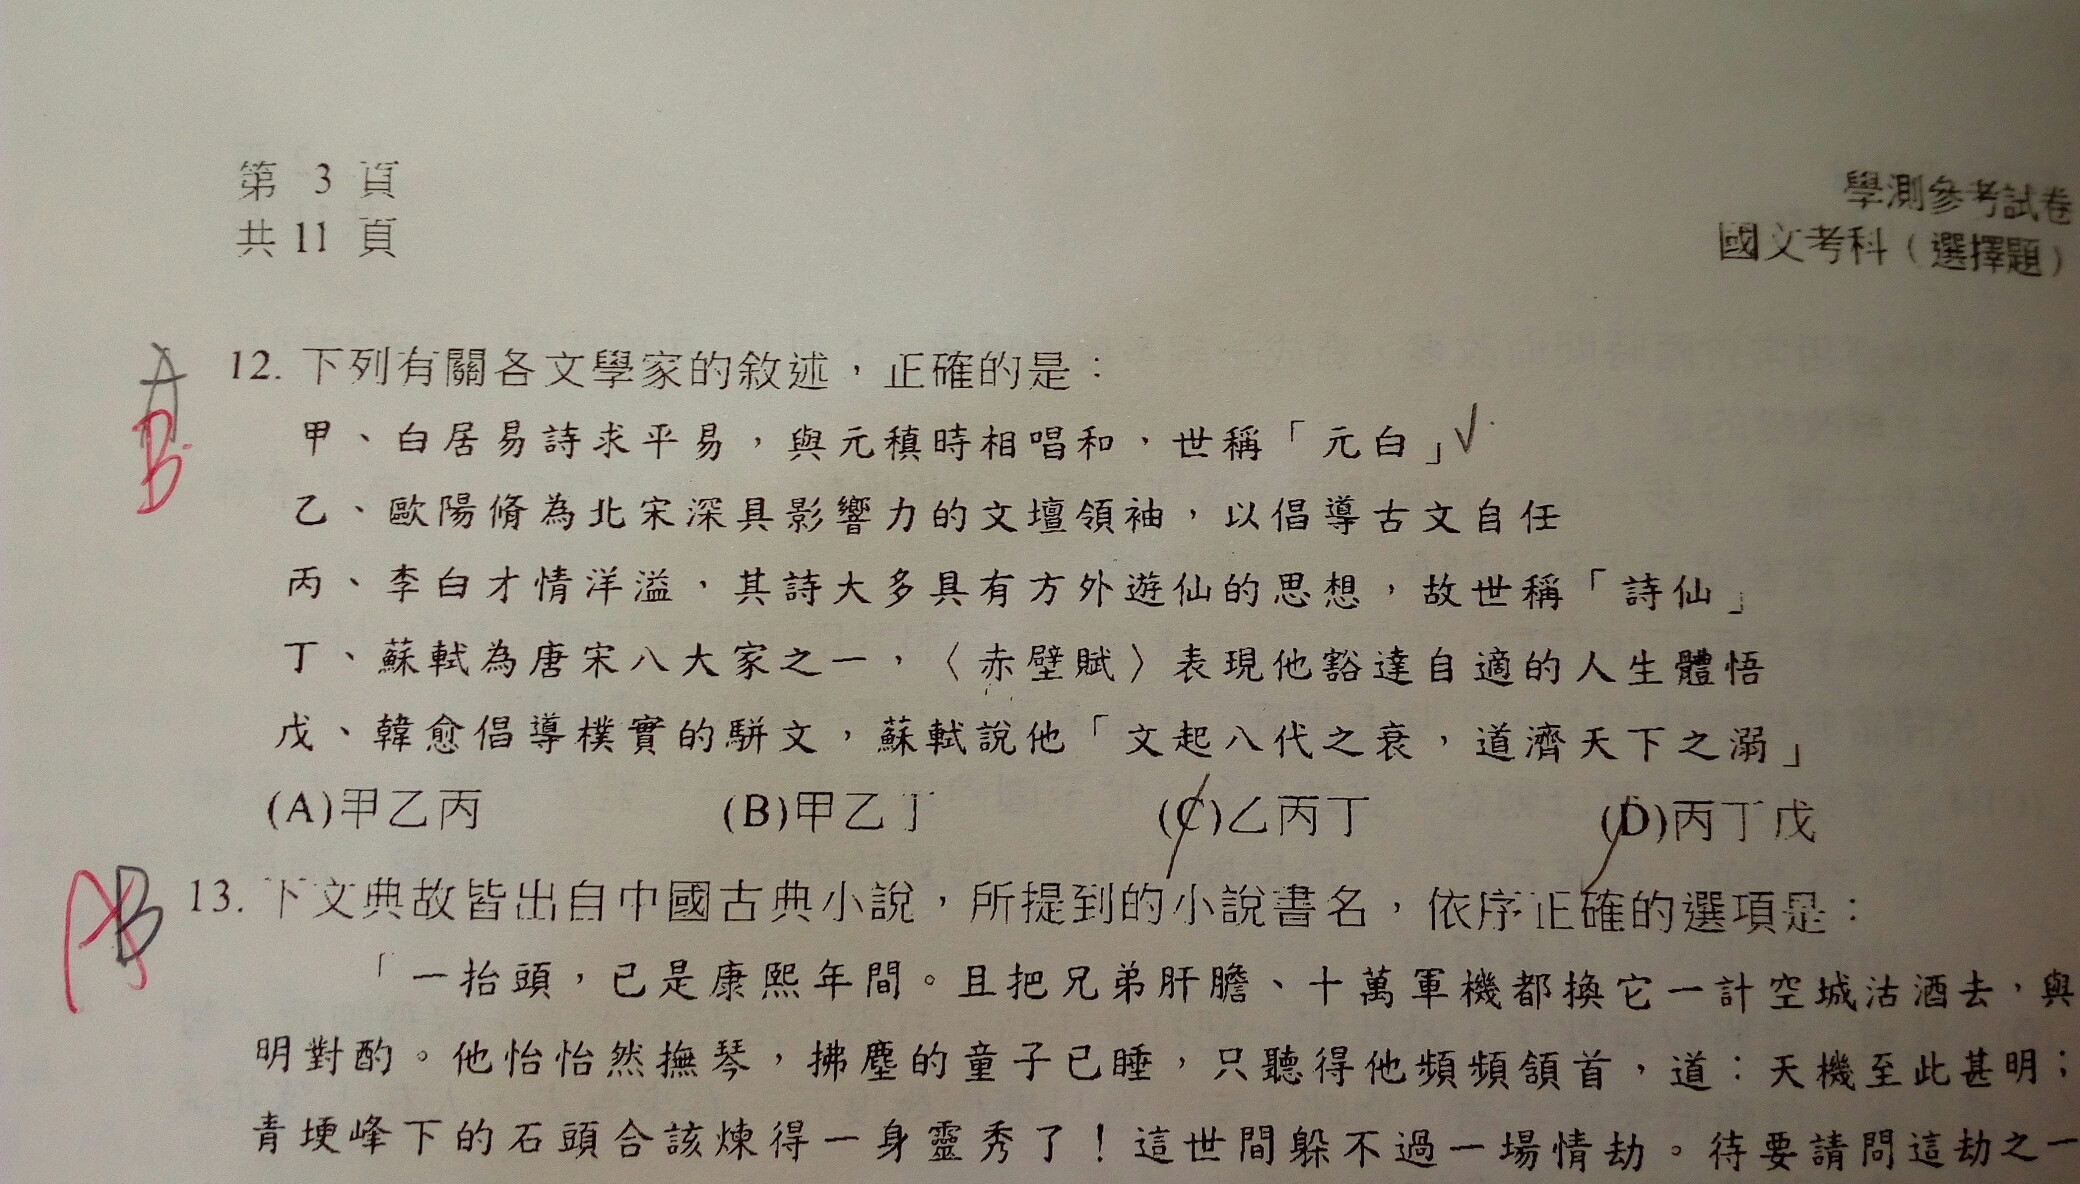 第 3 頁
共 11 頁
學測參考試卷
國文考科（選擇題）
A
B
12. 下列有關各文學家的敘述，正確的是：
甲、白居易詩求平易，與元稹時相唱和，世稱「元白」✓
乙、歐陽脩為北宋深具影響力的文壇領袖，以倡導古文自任
丙、李白才情洋溢，其詩大多具有方外遊仙的思想，故世稱「詩仙」
丁、蘇軾為唐宋八大家之一，〈赤壁賦〉表現他豁達自適的人生體悟
戊、韓愈倡導樸實的駢文，蘇軾說他「文起八代之衰，道濟天下之溺」
(A)甲乙丙 (B)甲乙丁 (C)乙丙丁 (D)丙丁戊
A B
13. 下文典故皆出自中國古典小說，所提到的小說書名，依序正確的選項是：
「一抬頭，已是康熙年間。且把兄弟肝膽、十萬軍機都換它一計空城沽酒去，與
明對酌。他怡怡然撫琴，拂塵的童子已睡，只聽得他頻頻頷首，道：天機至此甚明；
青埂峰下的石頭合該煉得一身靈秀了！這世間躲不過一場情劫。待要請問這劫之一